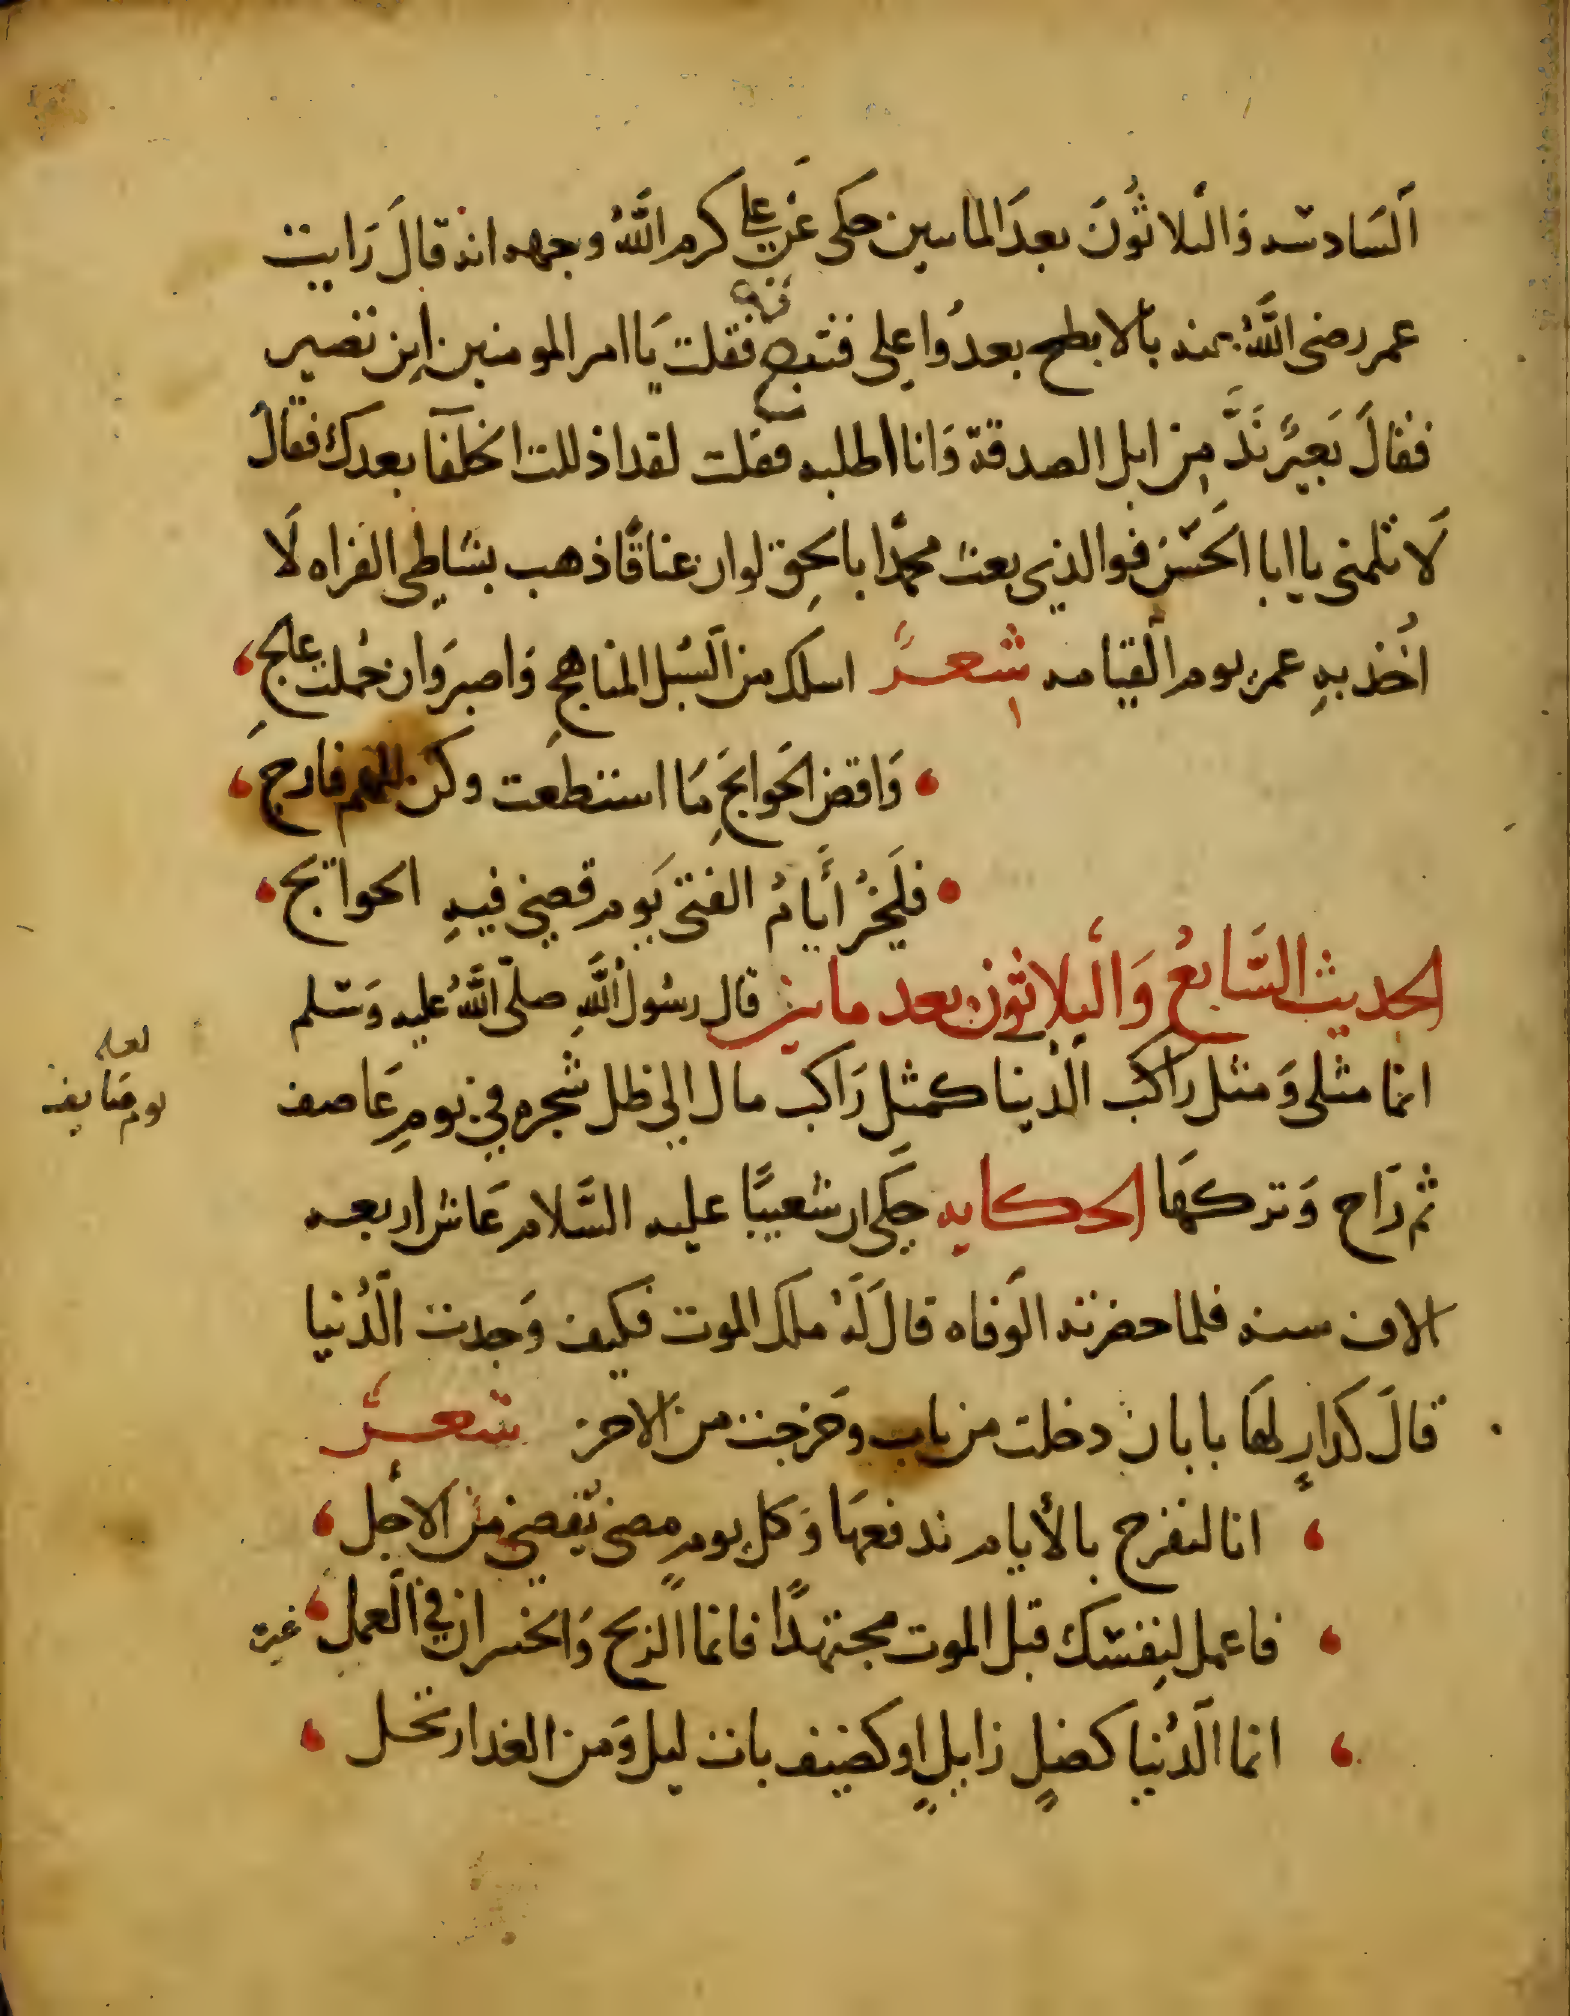 السادسه والثلاثون بعد الماتين حكى عن علي كرم الله وجهه انه قال رايت
عمر رضى الله عنه بالابطح يعدوا على فقلت يا امير المومنين اين تصير
فقال بعير ند من ابل الصدقة وانا اطلبه فقلت لقد اذللت الخلفا بعدك فقال
لا تلمني يا ابا الحسن فوالذي بعث محمدا بالحق لو ان عناقا ذهب بشاطي الفراه لا
اخذ به عمر يوم القيامه شعر اسلك من السبل المناهج واصبر وان حملت عالج
واقض الحوائج ما استطعت وكن لهم فارج
فلخير أيام الفتى يوم قضى فيه الحوائج
الحديث السابع والثلاثون بعد ماتين قال رسول الله صلى الله عليه وسلم
انما مثلى ومثل راكب الدنيا كمثل راكب مال الي ظل شجره في يوم عاصف
لعله
يوم صايف
ثم راح وتركها الحكايه حكي ان شعيبا عليه السلام عاش اربعه
الاف سنه فلما حضرته الوفاه قال له ملك الموت فكيف وجدت الدنيا
قال كدار لها بابان دخلت من باب وخرجت من الاخر شعر
انا لنفرح بالأيام ندفعها وكل يوم مضى نقصى من الاجل
فاعمل لنفسك قبل الموت مجتهدا فانما الربح والخسران في العمل غيره
انما الدنيا كضل زايل او كضيف بات ليل ومن الغد ارتحل